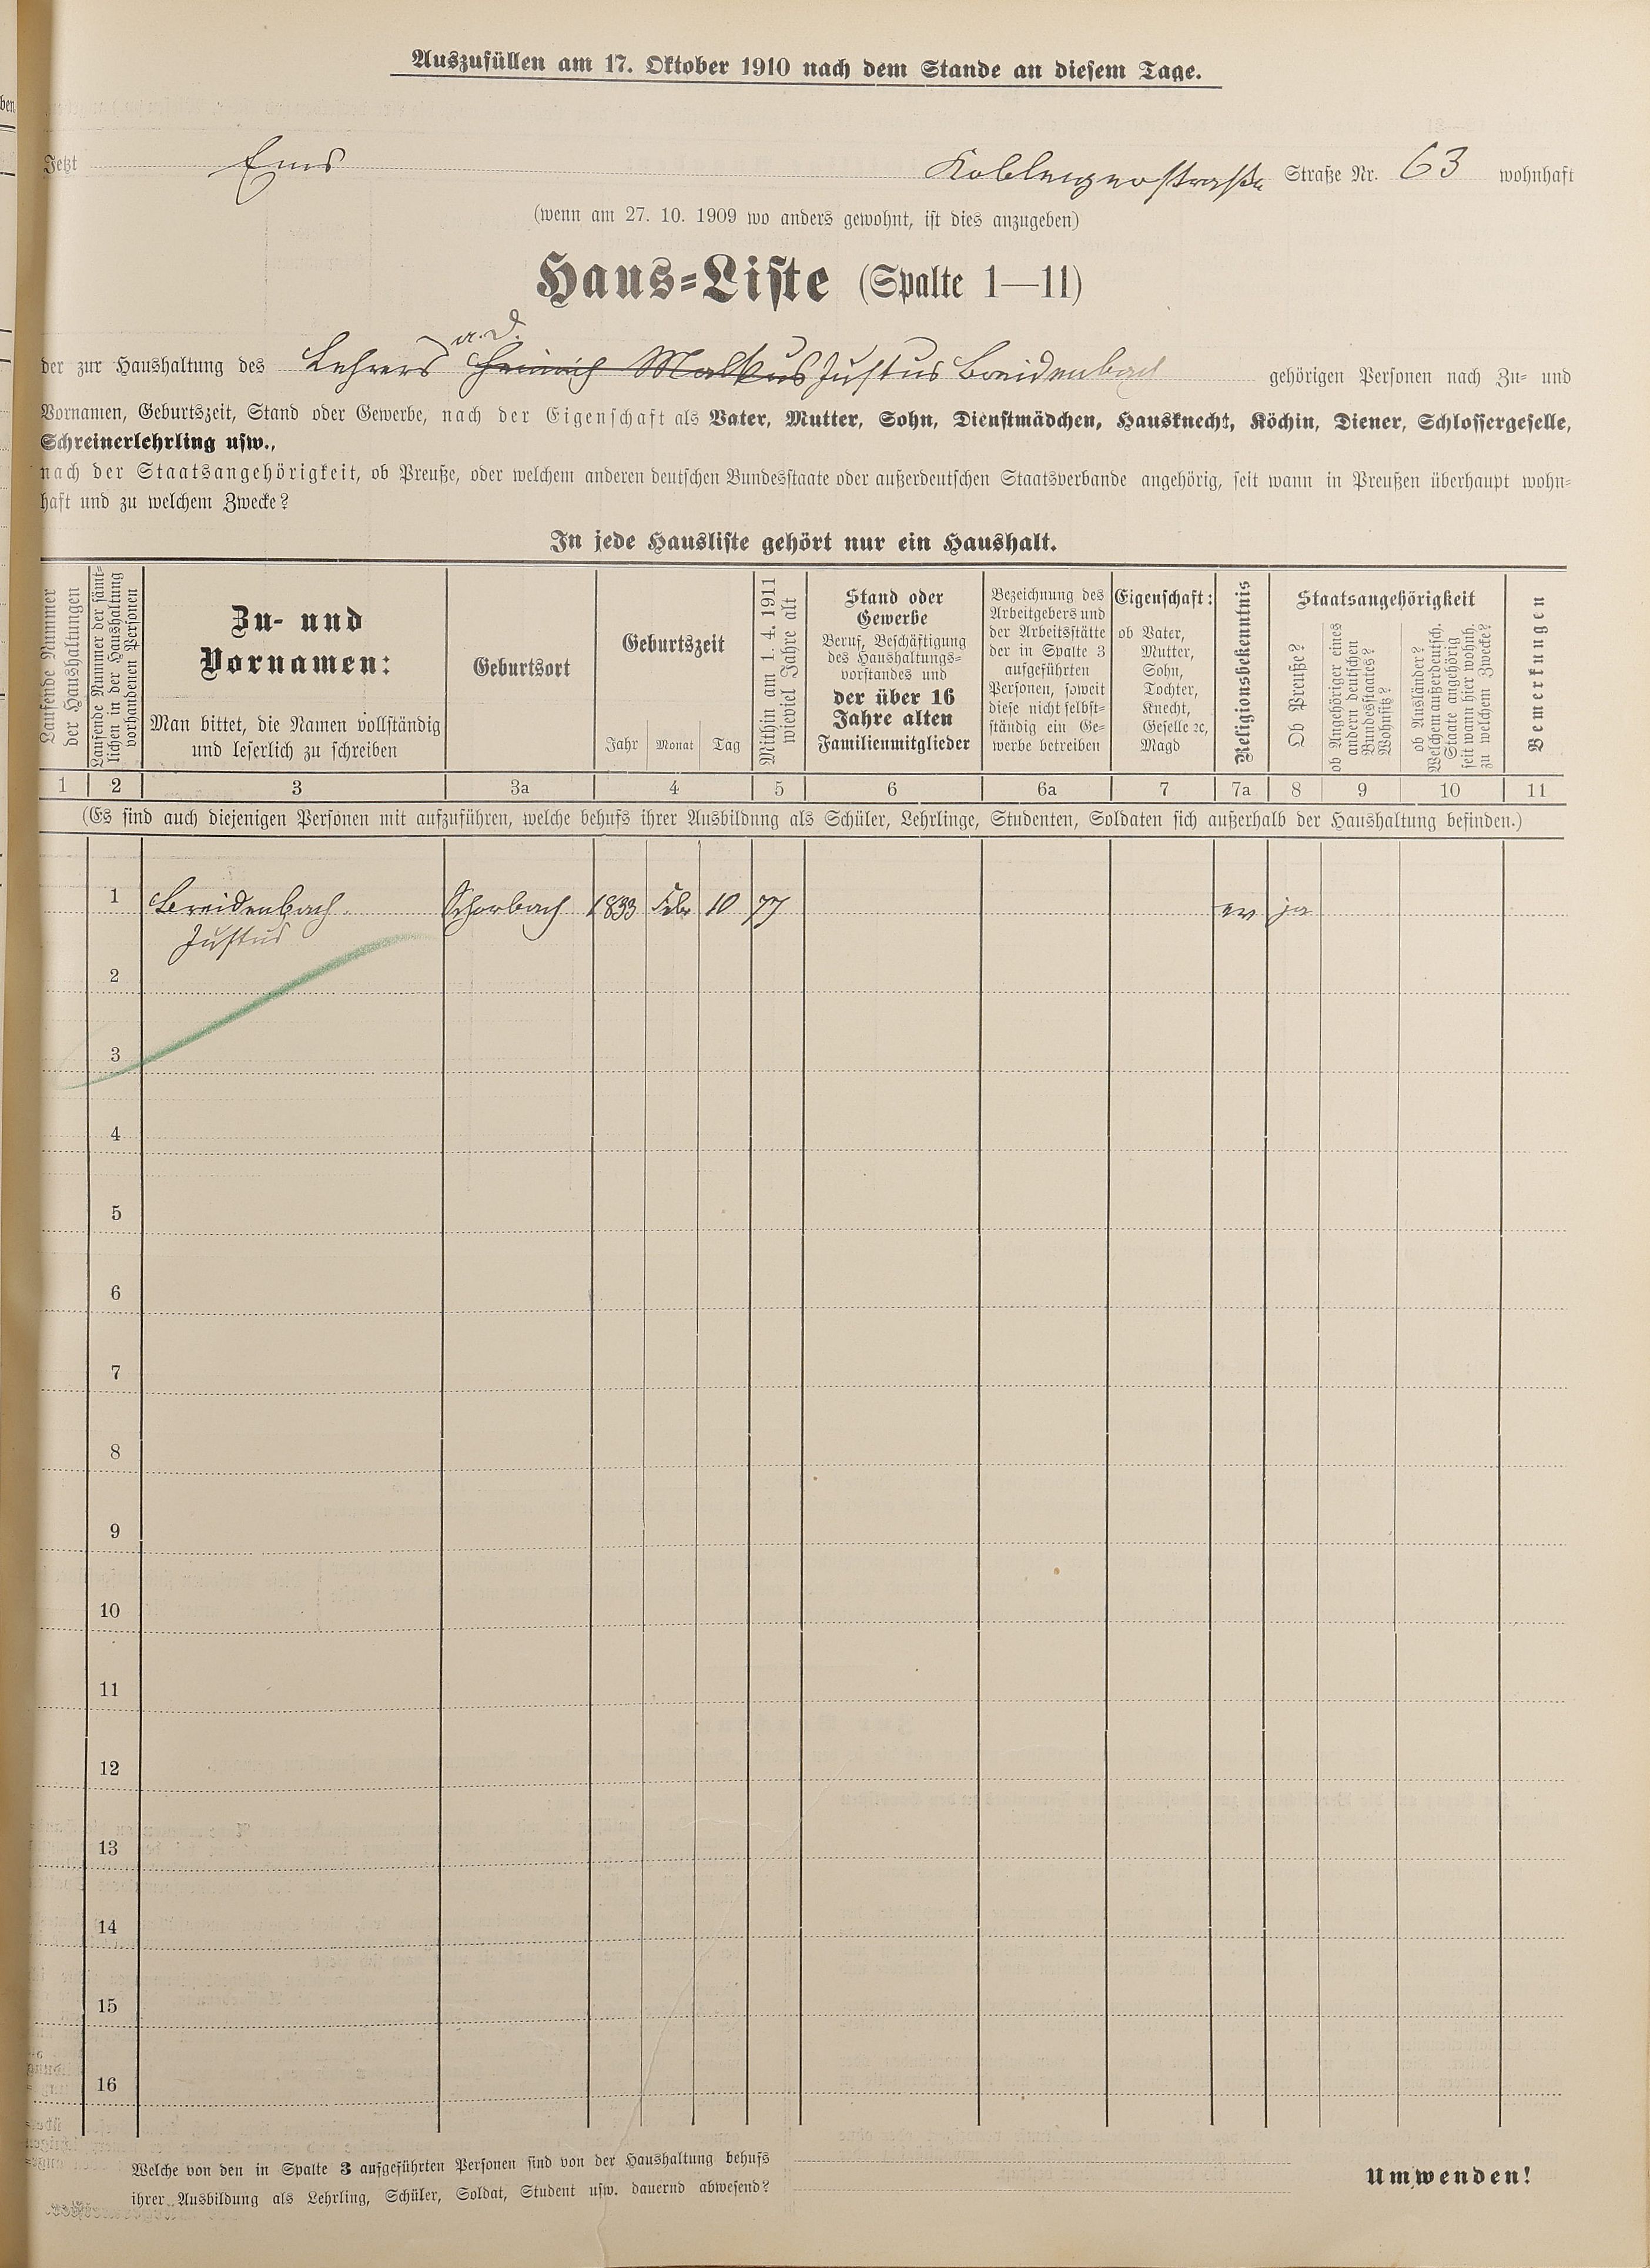 Auszufüllen am 17. Oktober 1910 nach dem Stande an diesem Tage.
Jetzt Ems Koblenzerstraße Straße Nr. 63 wohnhaft
(wenn am 27. 10. 1909 wo anders gewohnt, ist dies anzugeben)
Haus-Liste (Spalte 1—11)
a. D.
der zur Haushaltung des Lehrers Heinrich Malkus Justus Breidenbach gehörigen Personen nach Zu- und
Vornamen, Geburtszeit, Stand oder Gewerbe, nach der Eigenschaft als Vater, Mutter, Sohn, Dienstmädchen, Hausknecht, Köchin, Diener, Schlossergeselle,
Schreinerlehrling usw.,
nach der Staatsangehörigkeit, ob Preuße, oder welchem anderen deutschen Bundesstaate oder außerdeutschen Staatsverbande angehörig, seit wann in Preußen überhaupt wohn-
haft und zu welchem Zwecke?
In jede Hausliste gehört nur ein Haushalt.
Laufende Nummer
der Haushaltungen
Laufende Nummer der sämt-
lichen in der Haushaltung
vorhandenen Personen
Zu- und
Vornamen:
Man bittet, die Namen vollständig
und leserlich zu schreiben
Geburtsort
Geburtszeit
Jahr Monat Tag
Mithin am 1. 4. 1911
wieviel Jahre alt
Stand oder
Gewerbe
Beruf, Beschäftigung
des Haushaltungs-
vorstandes und
der über 16
Jahre alten
Familienmitglieder
Bezeichnung des
Arbeitgebers und
der Arbeitsstätte
der in Spalte 3
aufgeführten
Personen, soweit
diese nicht selbst-
ständig ein Ge-
werbe betreiben
Eigenschaft:
ob Vater,
Mutter,
Sohn,
Tochter,
Knecht,
Geselle ꝛc,
Magd
Religionsbekenntnis
Staatsangehörigkeit
Ob Preuße?
ob Angehöriger eines
andern deutschen
Bundesstaates?
Wohnsitz?
ob Ausländer?
Welchem außerdeutsch.
Staate angehörig
seit wann hier wohnh.
zu welchem Zwecke?
Bemerkungen
1 2 3 3a 4 5 6 6a 7 7a 8 9 10 11
(Es sind auch diejenigen Personen mit aufzuführen, welche behufs ihrer Ausbildung als Schüler, Lehrlinge, Studenten, Soldaten sich außerhalb der Haushaltung befinden.)
1 Breidenbach Schorbach 1833 Febr 10 77 ev ja
Justus
2
3
4
5
6
7
8
9
10
11
12
13
14
15
16
Welche von den in Spalte 3 aufgeführten Personen sind von der Haushaltung behufs
ihrer Ausbildung als Lehrling, Schüler, Soldat, Student usw. dauernd abwesend?
Umwenden!